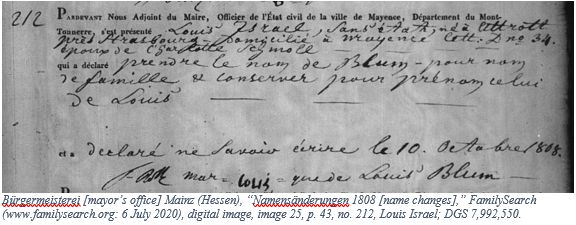 212
PARDEVANT Nous Adjoint du Maire, Officier de l'État civil de la ville de Mayence, Département du Mont-
Tonnerre, s'est présenté Louis Israel, sans état né à Ottrott
près Strasbourg domicilié à Mayence lett. D no 34.
époux de Charlotte Schmoll
qui a déclaré prendre le nom de Blum pour nom
de famille & conserver pour prénom celui
de Louis
et a déclaré ne savoir écrire le 10. Octobre 1808.
mar= que de Louis Blum
Bürgermeisterei [mayor's office] Mainz (Hessen), "Namensänderungen 1808 [name changes]," FamilySearch
(www.familysearch.org: 6 July 2020), digital image, image 25, p. 43, no. 212, Louis Israel; DGS 7,992,550.